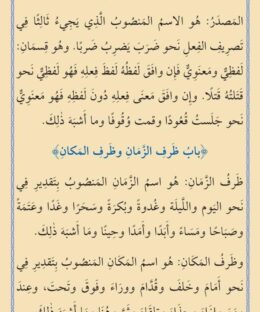 المَصدَرُ: هُوَ الاسمُ المَنصُوبُ الَّذِي يَجِيءُ ثَالِثًا فِي
تَصرِيفِ الفِعلِ نَحوَ ضَرَبَ يَضرِبُ ضَربًا. وهُوَ قِسمَانِ:
لَفظِيٌّ ومَعنَوِيٌّ فَإِن وافَقَ لَفظُهُ لَفظَ فِعلِهِ فَهُوَ لَفظِيٌّ نَحوَ
قَتَلتُهُ قَتلًا. وإِن وافَقَ مَعنَى فِعلِهِ دُونَ لَفظِهِ فَهُوَ مَعنَوِيٌّ
نَحوَ جَلَستُ قُعُودًا وقمت وُقُوفًا وما أَشبَهَ ذَلِكَ.
﴿بابُ ظَرفِ الزَّمَانِ وظَرفِ المَكانِ﴾
ظَرفُ الزَّمَانِ: هو اسمُ الزَّمَانِ المَنصُوبُ بِتَقدِيرِ فِي
نَحوَ اليَومِ واللَّيلَةِ وغُدوَةً وبُكرَةً وسَحَرًا وغَدًا وعَتَمَةً
وصَبَاحًا ومَسَاءً وأَبَدًا وأَمَدًا وحِينًا ومَا أَشبَهَ ذَلِكَ.
وظَرفُ المَكَانِ: هو اسمُ المَكَانِ المَنصُوبُ بِتَقدِيرِ فِي
نَحوَ أَمَامَ وخَلفَ وقُدَّامَ ووَرَاءَ وفَوقَ وتَحتَ، وعِندَ